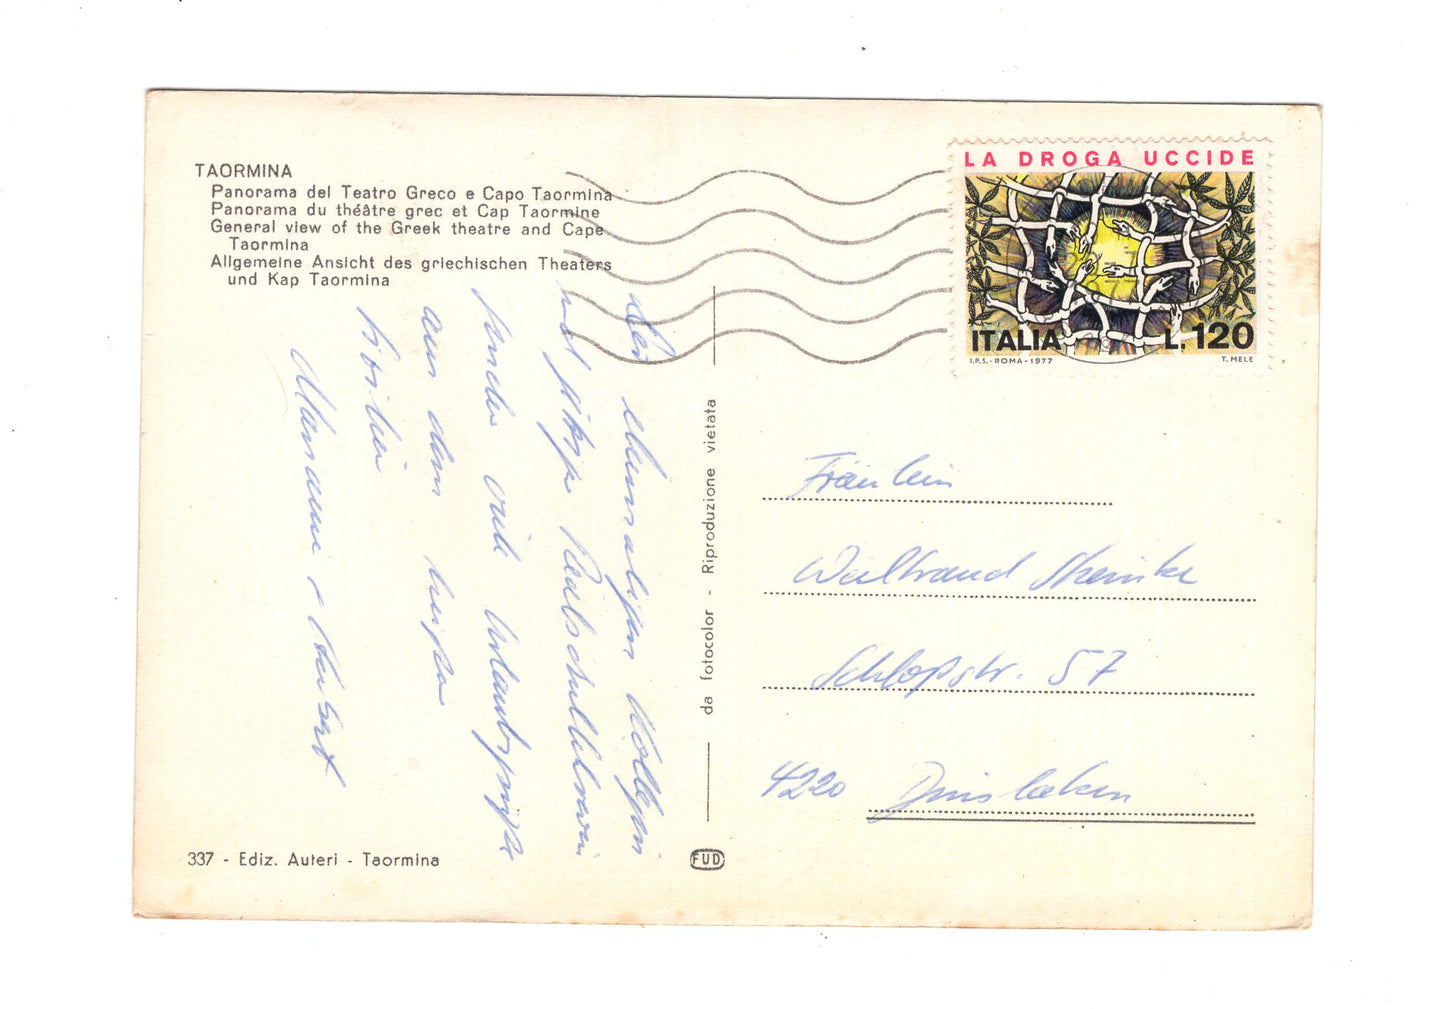 TAORMINA
Panorama del Teatro Greco e Capo Taormina
Panorama du théâtre grec et Cap Taormine
General view of the Greek theatre and Cape
Taormina
Allgemeine Ansicht des griechischen Theaters
und Kap Taormina
LA DROGA UCCIDE
ITALIA L. 120
I.P.S. - ROMA - 1977 T. MELE
Der ehemaligen Kollegin
und jetzige Realschullehrerin
senden viele Urlaubsgrüße
aus dem heißen
Sizilien
Marianne + Herbert
da fotocolor - Riproduzione vietata
Fräulein
Waltraud
Schloßstr. 57
4220 Dinslaken
337 - Ediz. Auteri - Taormina
FUD